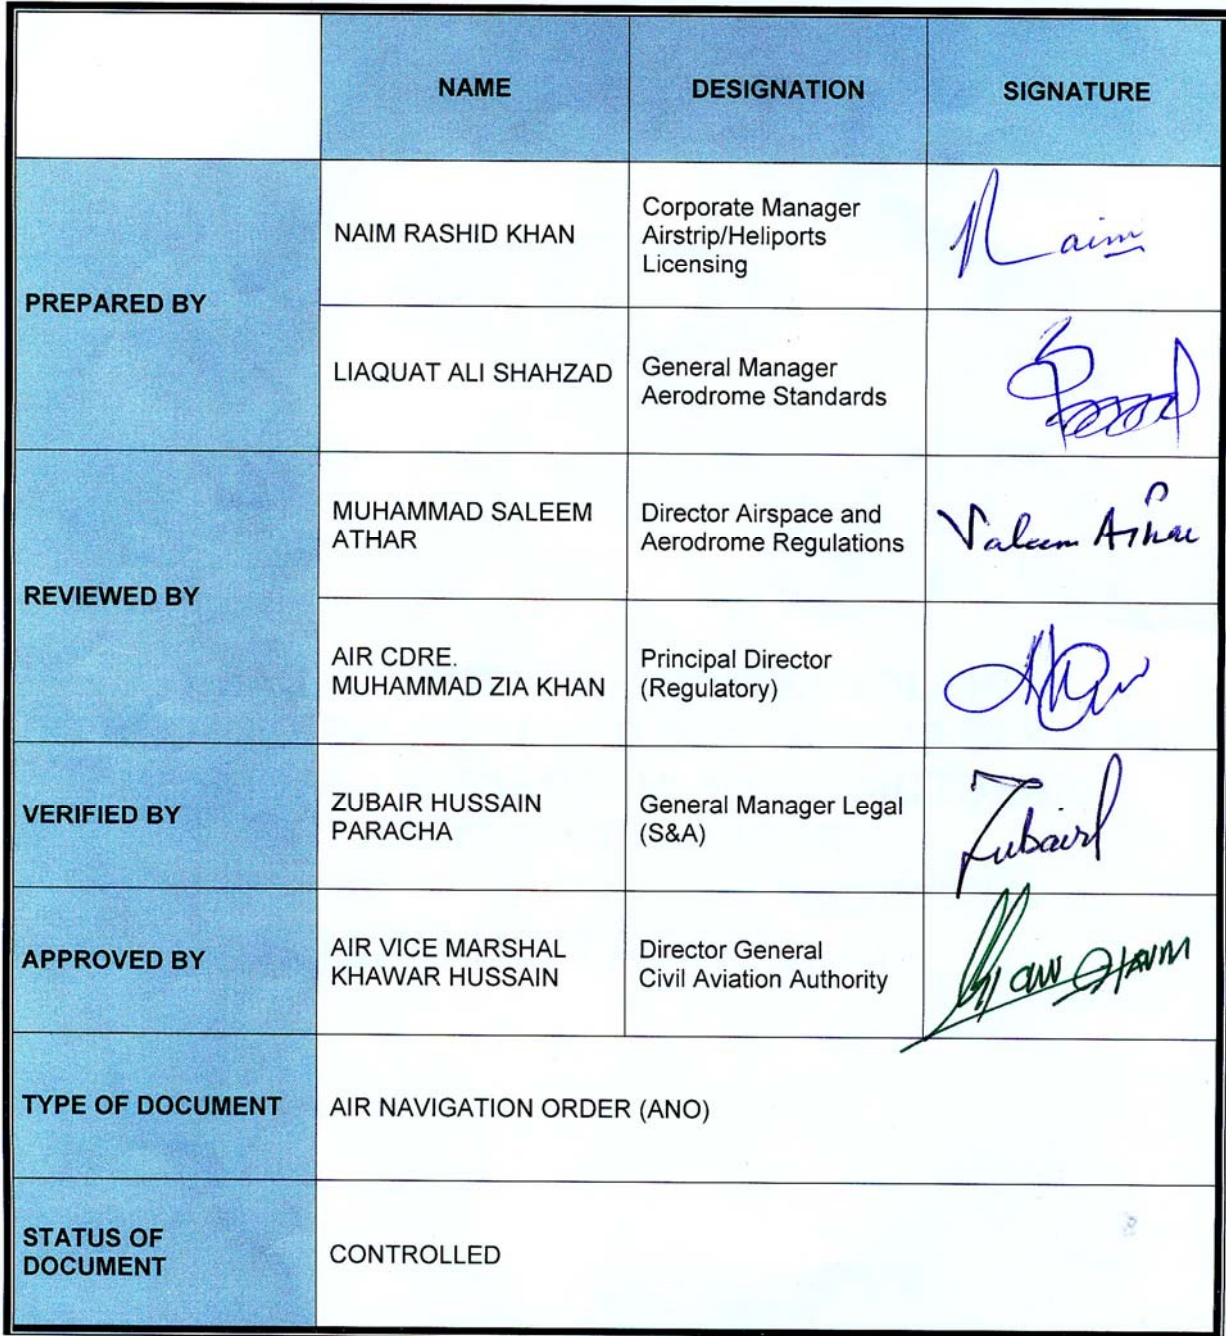 NAME
DESIGNATION
SIGNATURE
PREPARED BY
NAIM RASHID KHAN
Corporate Manager
Airstrip/Heliports
Licensing
Naim
LIAQUAT ALI SHAHZAD
General Manager
Aerodrome Standards
REVIEWED BY
MUHAMMAD SALEEM
ATHAR
Director Airspace and
Aerodrome Regulations
AIR CDRE.
MUHAMMAD ZIA KHAN
Principal Director
(Regulatory)
VERIFIED BY
ZUBAIR HUSSAIN
PARACHA
General Manager Legal
(S&A)
Zubair
APPROVED BY
AIR VICE MARSHAL
KHAWAR HUSSAIN
Director General
Civil Aviation Authority
TYPE OF DOCUMENT
AIR NAVIGATION ORDER (ANO)
STATUS OF
DOCUMENT
CONTROLLED